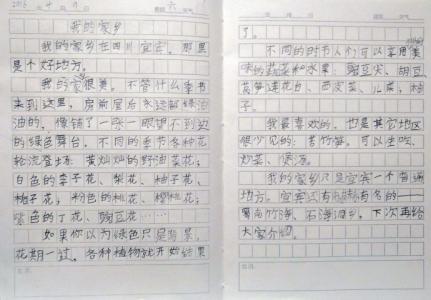 2016 年 4 月 9 日 六
我的家乡
我的家乡在四川宜宾。那里
是个好地方。
我的家乡很美。不管什么季节
来到这里,房前屋后永远都绿油
油的,像铺了一张一眼望不到边
的绿色舞台,不同的季节各种花
轮流登场:黄灿灿的野油菜花;
白色的李子花、梨花、柚子花、
柚子花;粉色的桃花、樱桃花;
紫色的丁花、豌豆花……
如果你以为绿色只是背景,
花期一过,各种植物就开始结果
了。
不同的时节人们可以享用美
味的蔬菜和水果、豌豆尖、胡豆、
莴笋莲花白、西皮菜、儿菜;柚
子。
我最喜欢的,也是其它地区
很少见的:苦竹笋。可以生吃、
炒菜、煲汤。
我的家乡只是宜宾一个普通
地方。宜宾还有 有名的——
蜀南竹海,石海洞乡,下次再给
大家介绍。